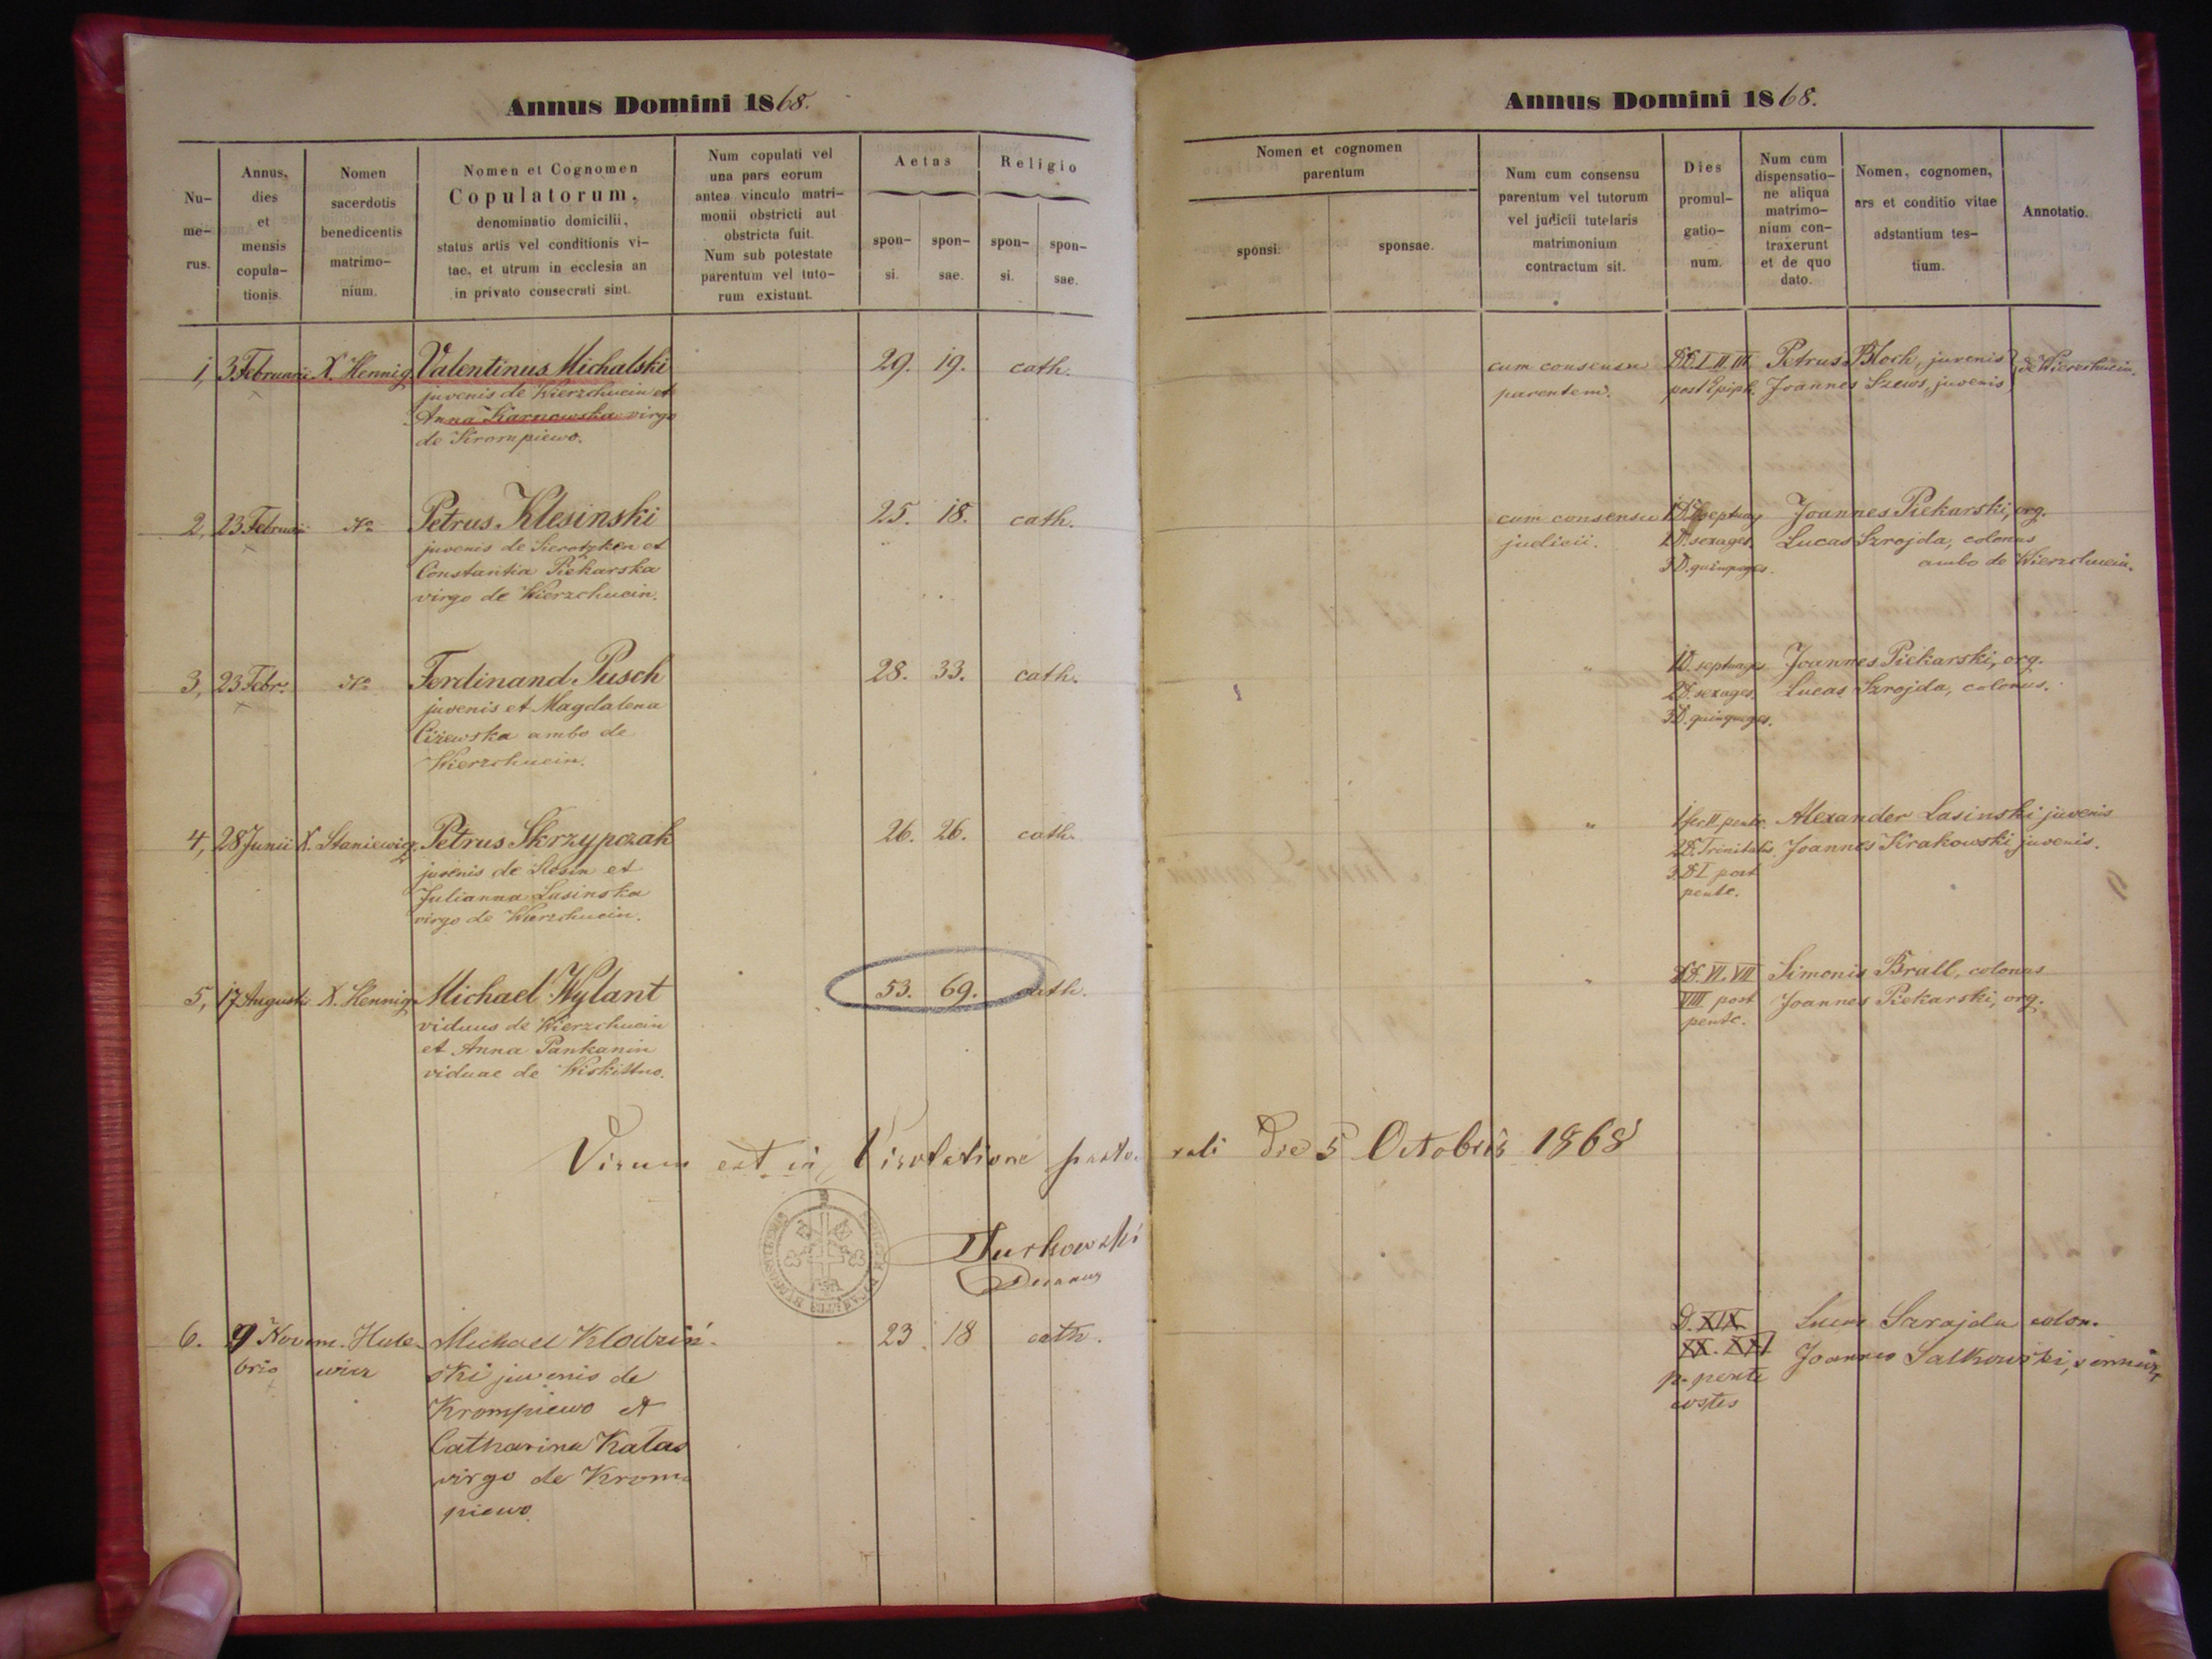 Annus Domini 1868.
Nu-
me-
rus.
Annus,
dies
et
mensis
copula-
tionis.
Nomen
sacerdotis
benedicentis
matrimo-
nium.
Nomen et Cognomen
Copulatorum,
denominatio domicilii,
status artis vel conditionis vi-
tae, et utrum in ecclesia an
in privato consecrati sint.
Num copulati vel
una pars eorum
antea vinculo matri-
monii obstricti aut
obstricta fuit.
Num sub potestate
parentum vel tuto-
rum existunt.
Aetas
spon-
si.
spon-
sae.
Religio
spon-
si.
spon-
sae.
1, 3 Februarii X. Hennig Valentinus Michalski 29. 19. cath.
juvenis de Wierzchucin et
Anna Karnowska virgo
de Krompiewo.
2, 23 Februarii Petrus Klesinski 25. 18. cath.
juvenis de et
Constantia Piekarska
virgo de Wierzchucin.
3, 23 Febr. Ferdinand Pusch 28. 33. cath.
juvenis et Magdalena
Cizewska ambo de
Wierzchucin.
4, 28 Junii X. Staniewicz Petrus Skrzypczak 26. 26. cath.
juvenis de Slesin et
Julianna Lasinska
virgo de Wierzchucin.
5, 17 Augusti X. Hennig Michael Wylant 53. 69. cath.
viduus de Wierzchucin
et Anna Pankanin
viduae de
Visum est in Visitatione pasto-
Turkowski
Decanus
6. 9 Novem- Michael Klodzin- 23. 18 cath.
bris ski juvenis de
Krompiewo et
Catharina Katas
virgo de Krom-
piewo
Annus Domini 1868.
Nomen et cognomen
parentum
sponsi.
sponsae.
Num cum consensu
parentum vel tutorum
vel judicii tutelaris
matrimonium
contractum sit.
Dies
promul-
gatio-
num.
Num cum
dispensatio-
ne aliqua
matrimo-
nium con-
traxerunt
et de quo
dato.
Nomen, cognomen,
ars et conditio vitae
adstantium tes-
tium.
Annotatio.
cum consensu DD. I II III Petrus Bloch, juvenis } de Wierzchucin.
parentem. post Epiph. Joannes Szews, juvenis
cum consensu 1 D. septuag Joannes Piekarski, org.
judicii. 2 D. sexages. Lucas Szrojda, colonus
3 D. quinquages. ambo de Wierzchucin.
" 1 D. septuages. Joannes Piekarski, org.
2 D. sexages. Lucas Szrojda, colonus.
3 D. quinquages.
" 1 fer II pente. Alexander Lasinski juvenis
2 D. Trinitatis. Joannes Krakowski juvenis.
3. D I post
pente.
" DD. VI. VII Simonis Brall, colonus
VIII post Joannes Piekarski, org.
pente.
rali Die 5 Octobris 1868
D. XIX. Lucas Szrajda colon.
XX. XXI. Joannes Salkowski,
p. pente
costes